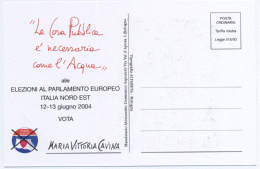 "La Cosa Pubblica
è necessaria
come l'Acqua"
alle
ELEZIONI AL PARLAMENTO EUROPEO
ITALIA NORD EST
12-13 giugno 2004
VOTA
MARIA VITTORIA CAVINA
POSTA
ORDINARIA
Tariffa ridotta
Legge 515/93